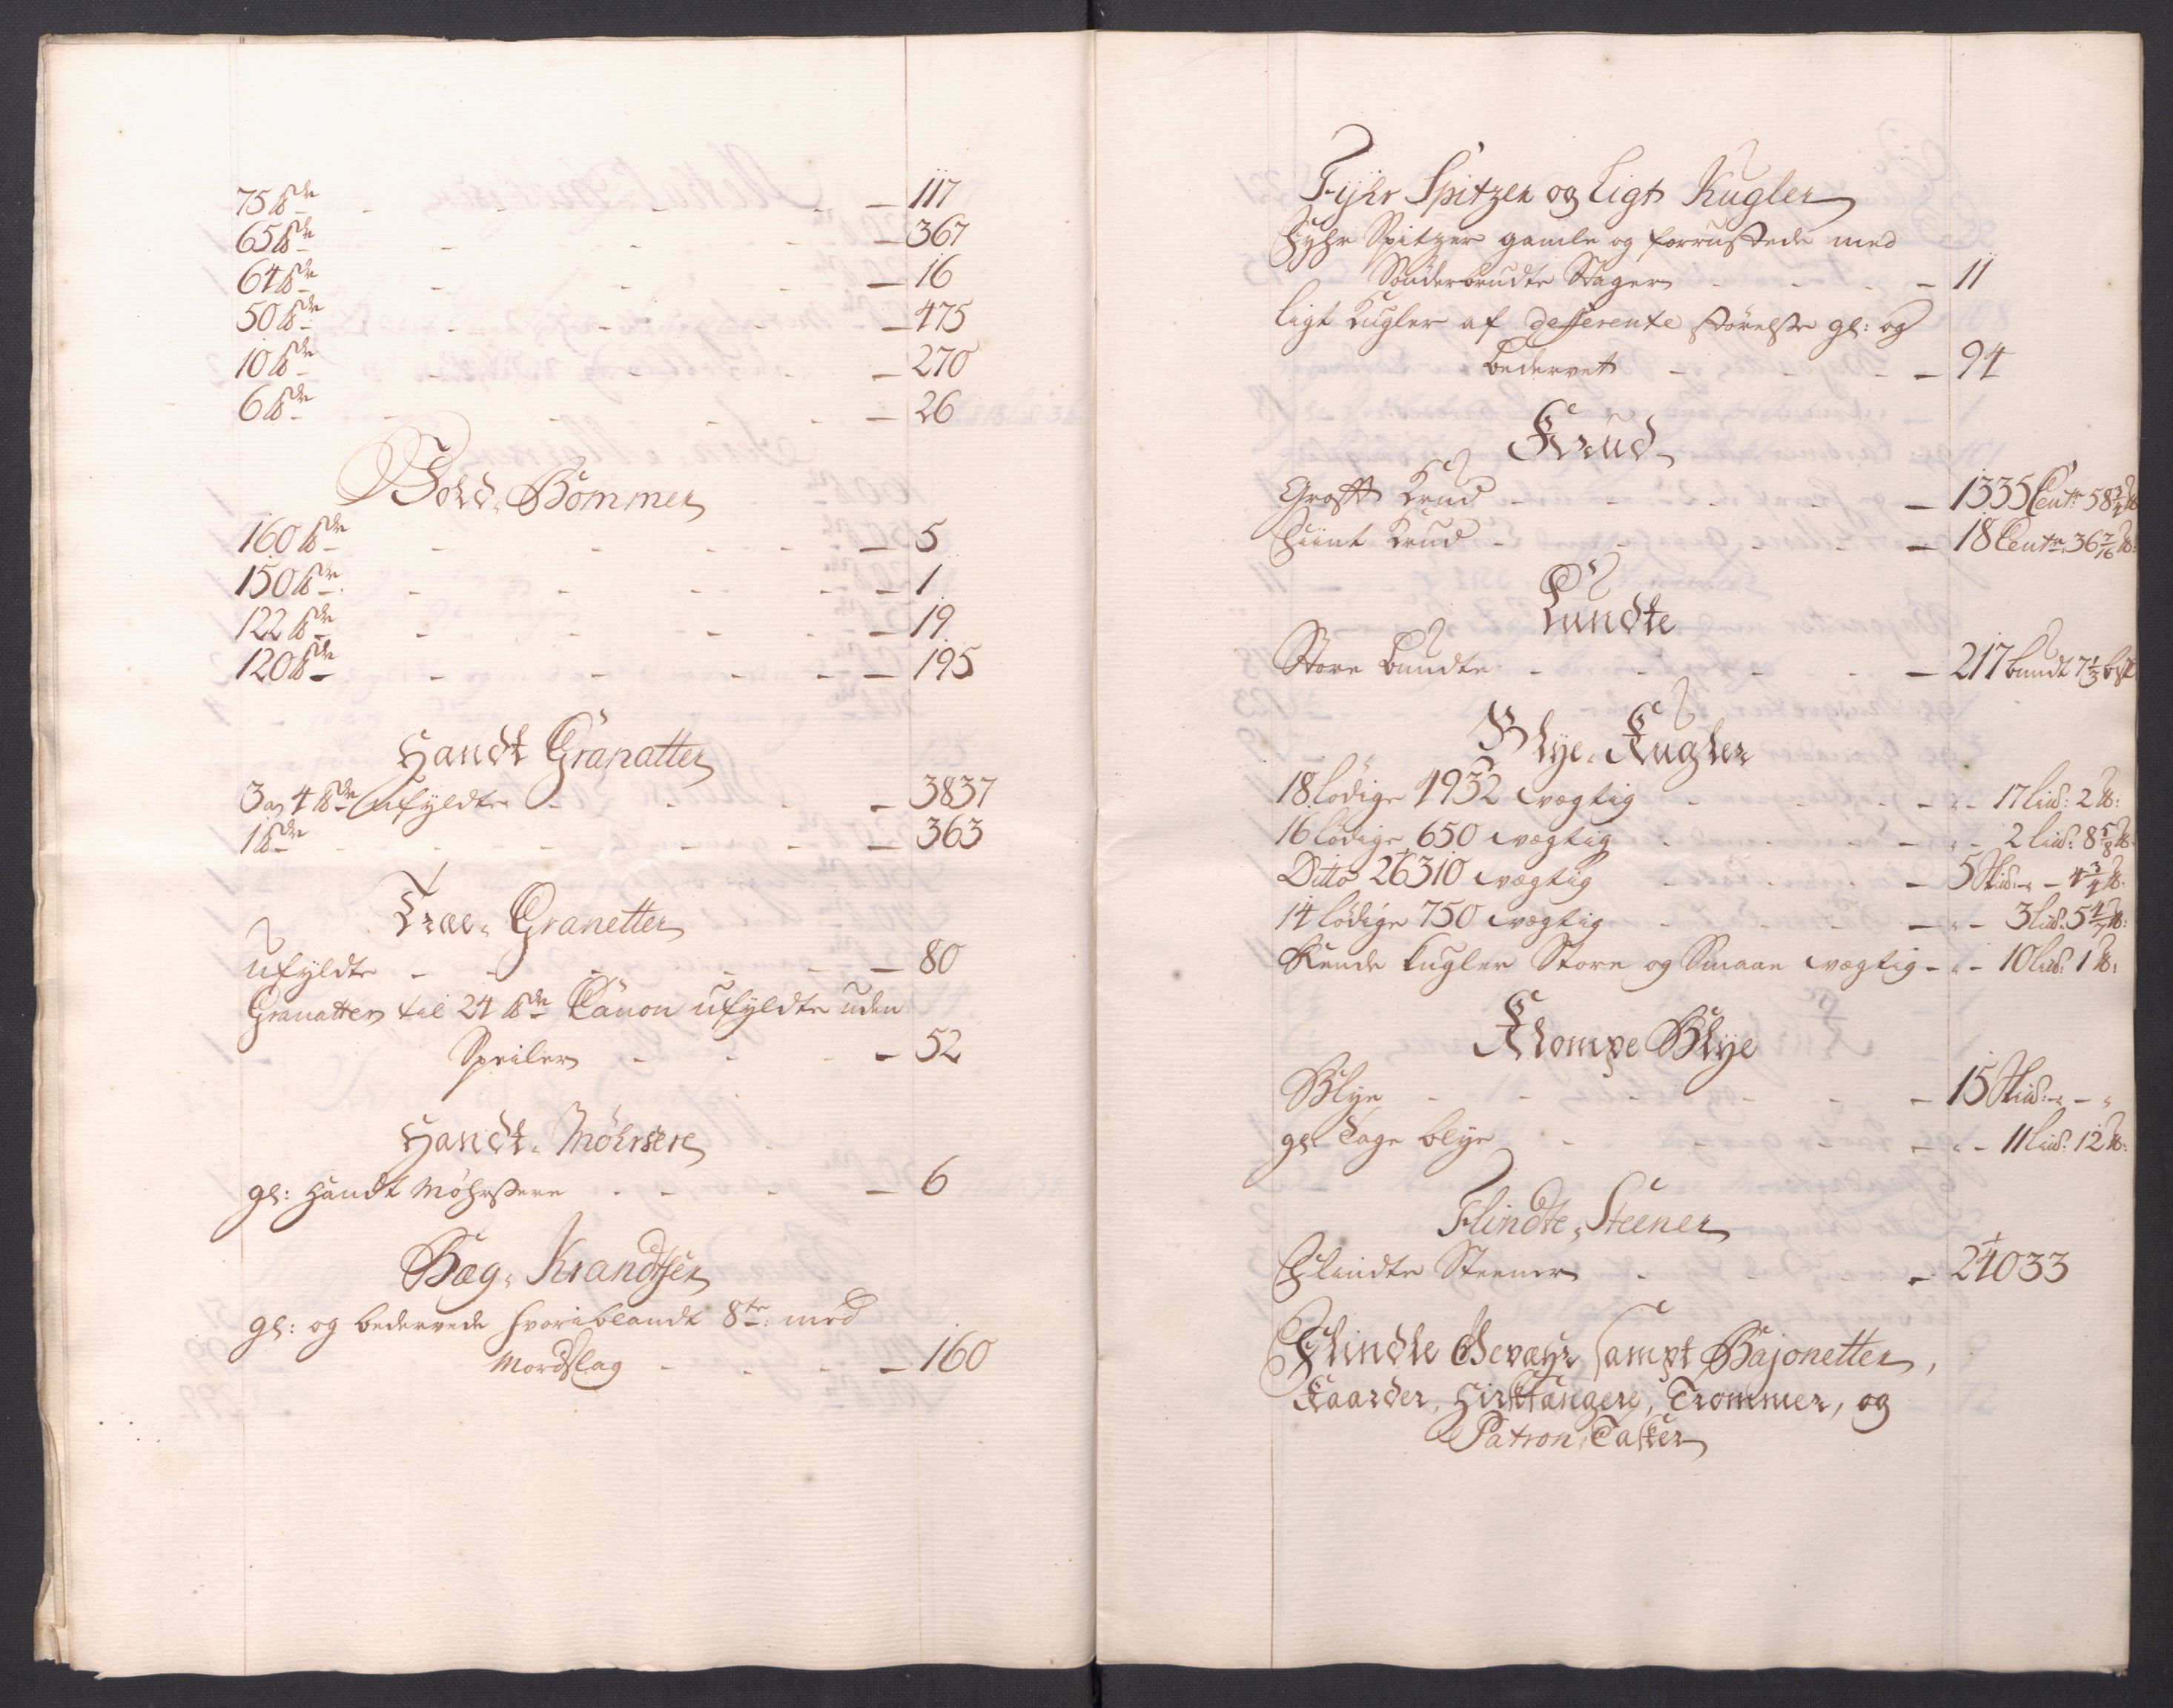 75 ℔de - - - - 117
65 ℔de - - - - 367
64 ℔de - - - - 16
50 ℔de - - - - 475
10 ℔de - - - - 270
6 ℔de - - - - 26
Bold Bommer
160 ℔de - - - - 5
150 ℔de - - - - 1
122 ℔de - - - - 19
120 ℔de - - - - 195
Handt Granatter
3 a 4 ℔de ufyldte - - - 3837
1 ℔de - - - - 363
Træe Granetter
ufyldte - - - - 80
Granatter til 24 ℔de Canon ufyldte uden
Speiler - - - 52
Handt Møhrsere
gl: Handt Møhrsere - - - 6
Bæg Krandtser
gl: og bedervede hvoriblandt 8te med
Mordslag - - - 160
Fyhr Spitzer og Ligt Kugler
Fyhr Spitzer gamle og forrustede med
Sønderbrudte Stager - - - 11
Ligt Kugler af defferente størelse gl: og
bedervet - - - 94
Krud
Groft Krud - - - 1335 Centr 58 3/4 ℔
Fiint Krud - - - 18 Centr 36 7/16 ℔:
Lundte
Store Bundter - - - 217 bundt 7 1/3 bst
Blye Kugler
18 lødige 4932 vægtig - - - 17 Lisd: 2 ℔:
16 lødige 650 vægtig - - - 2 lisd: 8 5/8 ℔:
Ditto 26310 vægtig - - - 5 Skisd: - 4 3/4 ℔:
14 lødige 750 vægtig - - - 3 lisd: 5 4/7 ℔:
Runde kugler Store og Smaae vægtig - - 10 lisd: 1 ℔:
Klompe Blye
Blye - - - 15 Skisd: - -
gl: Tage blye - - - 11 Lisd: 12 ℔:
Flindte Steener
Flindte Steener - - - 24033
Flindte Gevæhr sampt Bajonetter,
Kaarder, Hirtsfangere, Trommer, og
Patron Tasker